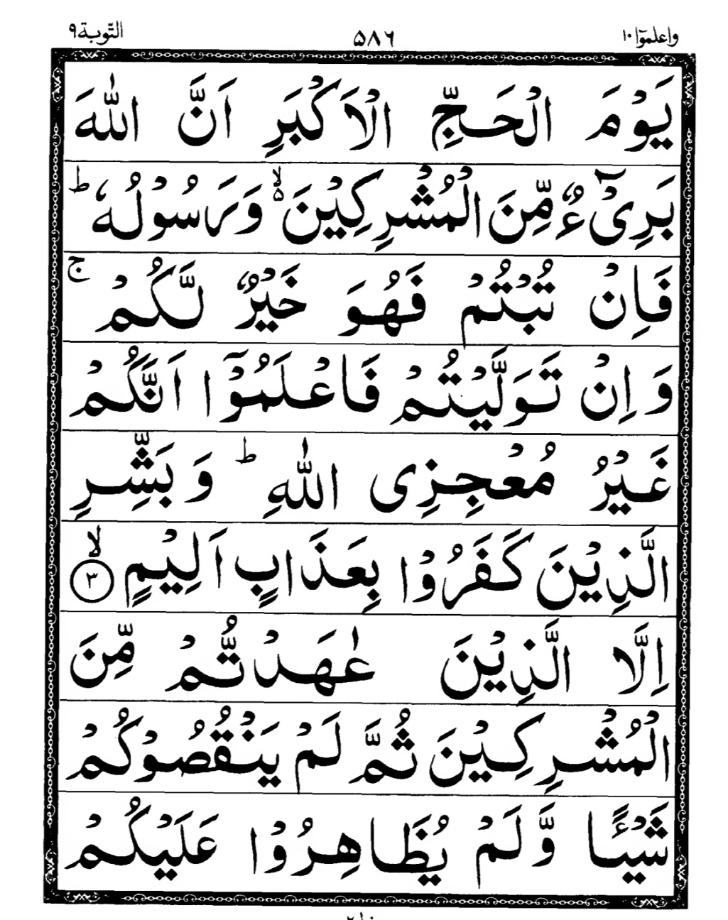 واعلموٓا ١٠ ٥٨٦ التّوبة ٩
يَوْمَ الْحَجِّ الْاَكْبَرِ اَنَّ اللّٰهَ
بَرِیْٓءٌ مِّنَ الْمُشْرِكِیْنَ ۙ۬ وَرَسُوْلُهٗ ؕ
فَاِنْ تُبْتُمْ فَهُوَ خَیْرٌ لَّكُمْ ۚ
وَ اِنْ تَوَلَّیْتُمْ فَاعْلَمُوْۤا اَنَّكُمْ
غَیْرُ مُعْجِزِی اللّٰهِ ؕ وَ بَشِّرِ
الَّذِیْنَ كَفَرُوْا بِعَذَابٍ اَلِیْمٍ ۙ﴿٣﴾
اِلَّا الَّذِیْنَ عٰهَدْتُّمْ مِّنَ
الْمُشْرِكِیْنَ ثُمَّ لَمْ یَنْقُصُوْكُمْ
شَیْـًٔا وَّلَمْ یُظَاهِرُوْا عَلَیْكُمْ